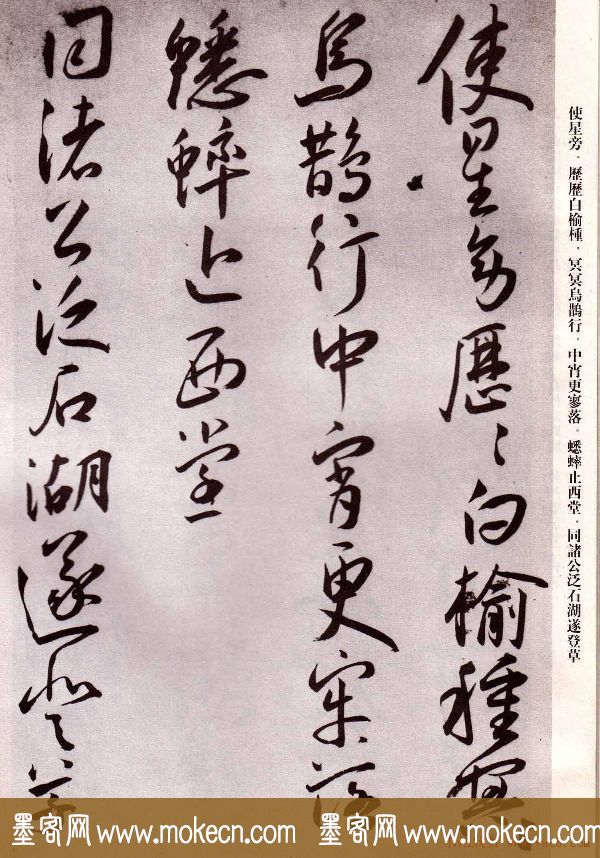 使星旁。歷歷白榆種。冥冥烏鵲行。中宵更寥落。蟋蟀止西堂。同諸公泛石湖遂登草
使星旁歷〻白榆種冥〻
烏鵲行中宵更寥落
蟋蟀止西堂
同諸公泛石湖遂登草
墨客网 www.mokecn.com 墨客网 www.mokecn.com